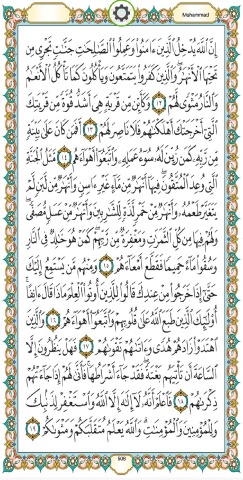 Muhammad
إِنَّ ٱللَّهَ يُدْخِلُ ٱلَّذِينَ ءَامَنُوا۟ وَعَمِلُوا۟ ٱلصَّٰلِحَٰتِ جَنَّٰتٍ تَجْرِى مِن
تَحْتِهَا ٱلْأَنْهَٰرُ وَٱلَّذِينَ كَفَرُوا۟ يَتَمَتَّعُونَ وَيَأْكُلُونَ كَمَا تَأْكُلُ ٱلْأَنْعَٰمُ
وَٱلنَّارُ مَثْوًى لَّهُمْ ١٢ وَكَأَيِّن مِّن قَرْيَةٍ هِىَ أَشَدُّ قُوَّةً مِّن قَرْيَتِكَ
ٱلَّتِىٓ أَخْرَجَتْكَ أَهْلَكْنَٰهُمْ فَلَا نَاصِرَ لَهُمْ ١٣ أَفَمَن كَانَ عَلَىٰ بَيِّنَةٍ
مِّن رَّبِّهِۦ كَمَن زُيِّنَ لَهُۥ سُوٓءُ عَمَلِهِۦ وَٱتَّبَعُوٓا۟ أَهْوَآءَهُم ١٤ مَّثَلُ ٱلْجَنَّةِ
ٱلَّتِى وُعِدَ ٱلْمُتَّقُونَ فِيهَآ أَنْهَٰرٌ مِّن مَّآءٍ غَيْرِ ءَاسِنٍ وَأَنْهَٰرٌ مِّن لَّبَنٍ لَّمْ
يَتَغَيَّرْ طَعْمُهُۥ وَأَنْهَٰرٌ مِّنْ خَمْرٍ لَّذَّةٍ لِّلشَّٰرِبِينَ وَأَنْهَٰرٌ مِّنْ عَسَلٍ مُّصَفًّى
وَلَهُمْ فِيهَا مِن كُلِّ ٱلثَّمَرَٰتِ وَمَغْفِرَةٌ مِّن رَّبِّهِمْ كَمَنْ هُوَ خَٰلِدٌ فِى ٱلنَّارِ
وَسُقُوا۟ مَآءً حَمِيمًا فَقَطَّعَ أَمْعَآءَهُمْ ١٥ وَمِنْهُم مَّن يَسْتَمِعُ إِلَيْكَ
حَتَّىٰٓ إِذَا خَرَجُوا۟ مِنْ عِندِكَ قَالُوا۟ لِلَّذِينَ أُوتُوا۟ ٱلْعِلْمَ مَاذَا قَالَ ءَانِفًا
أُو۟لَٰٓئِكَ ٱلَّذِينَ طَبَعَ ٱللَّهُ عَلَىٰ قُلُوبِهِمْ وَٱتَّبَعُوٓا۟ أَهْوَآءَهُمْ ١٦ وَٱلَّذِينَ
ٱهْتَدَوْا۟ زَادَهُمْ هُدًى وَءَاتَىٰهُمْ تَقْوَىٰهُمْ ١٧ فَهَلْ يَنظُرُونَ إِلَّا
ٱلسَّاعَةَ أَن تَأْتِيَهُم بَغْتَةً فَقَدْ جَآءَ أَشْرَاطُهَا فَأَنَّىٰ لَهُمْ إِذَا جَآءَتْهُمْ
ذِكْرَىٰهُمْ ١٨ فَٱعْلَمْ أَنَّهُۥ لَآ إِلَٰهَ إِلَّا ٱللَّهُ وَٱسْتَغْفِرْ لِذَنۢبِكَ
وَلِلْمُؤْمِنِينَ وَٱلْمُؤْمِنَٰتِ وَٱللَّهُ يَعْلَمُ مُتَقَلَّبَكُمْ وَمَثْوَىٰكُمْ ١٩
508